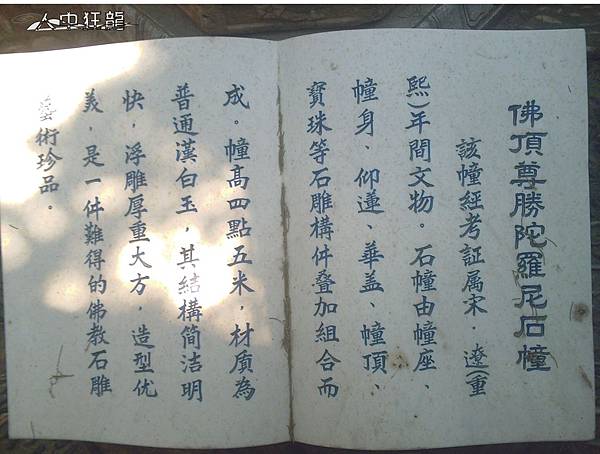 人中狂龍
佛頂尊勝陀羅尼石幢
該幢經考証属宋．遼(重
熙)年間文物。石幢由幢座、
幢身、仰蓮、華盖、幢頂、
寳珠等石雕構件叠加組合而
成。幢高四點五米，材质為
普通漢白玉，其結構简洁明
快，浮雕厚重大方，造型优
美，是一件難得的佛教石雕
藝術珍品。